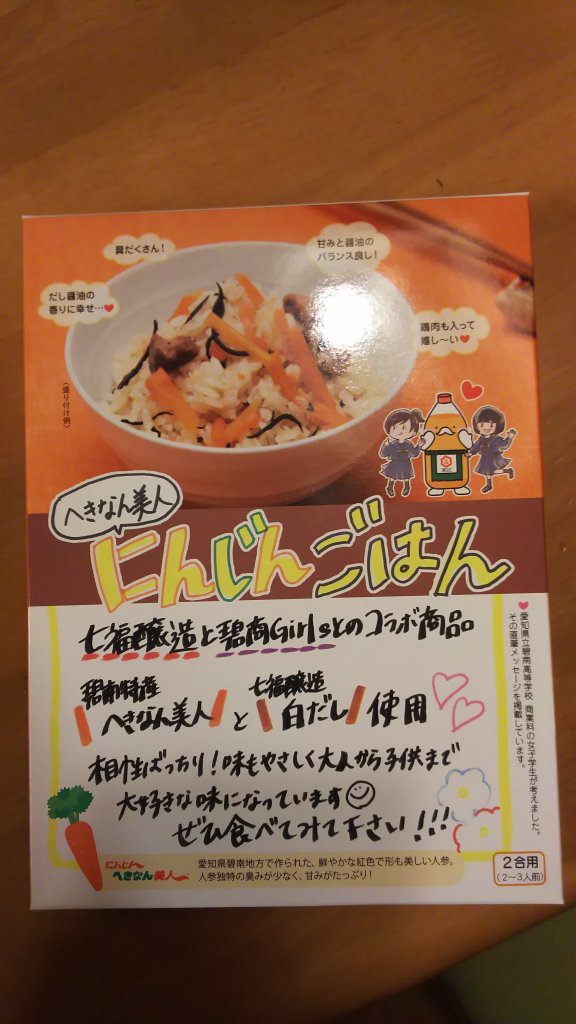 具だくさん!
甘みと醤油の
バランス良し!
だし醤油の
香りに幸せ…♥
鶏肉も入って
嬉し〜い♥
(盛り付け例)
へきなん美人
にんじんごはん
七福醸造と碧商Girlsとのコラボ商品
碧南特産
へきなん美人
と
七福醸造
白だし
使用
相性ばっちり!味もやさしく大人から子供まで
大好きな味になっています☺
ぜひ食べてみて下さい!!!
♥愛知県立碧南高等学校 商業科の女子学生が考えました。
その直筆メッセージを掲載しています。
にんじん
へきなん美人
愛知県碧南地方で作られた、鮮やかな紅色で形も美しい人参。
人参独特の臭みが少なく、甘みがたっぷり!
2合用
(2〜3人前)